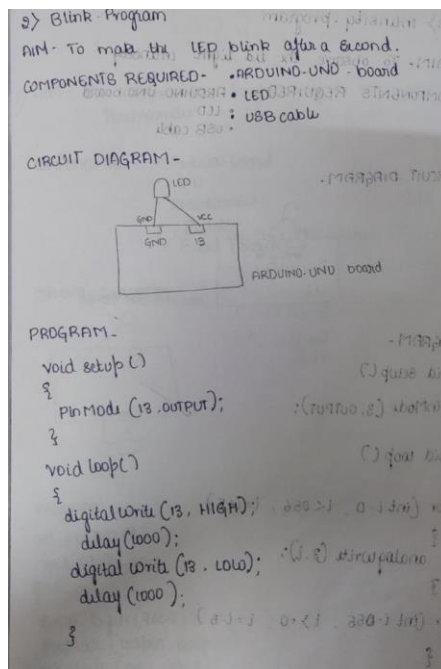 2) Blink Program
AIM- To make the LED blink after a second.
COMPONENTS REQUIRED- . ARDUINO-UNO board
. LED
: USB cable
CIRCUIT DIAGRAM-
LED
GND VCC
GND 13
ARDUINO-UNO board
PROGRAM-
void setup()
{
PinMode (13, OUTPUT);
}
void loop()
{
digitalWrite (13, HIGH);
delay (1000);
digital write (13, LOW);
delay (1000);
}